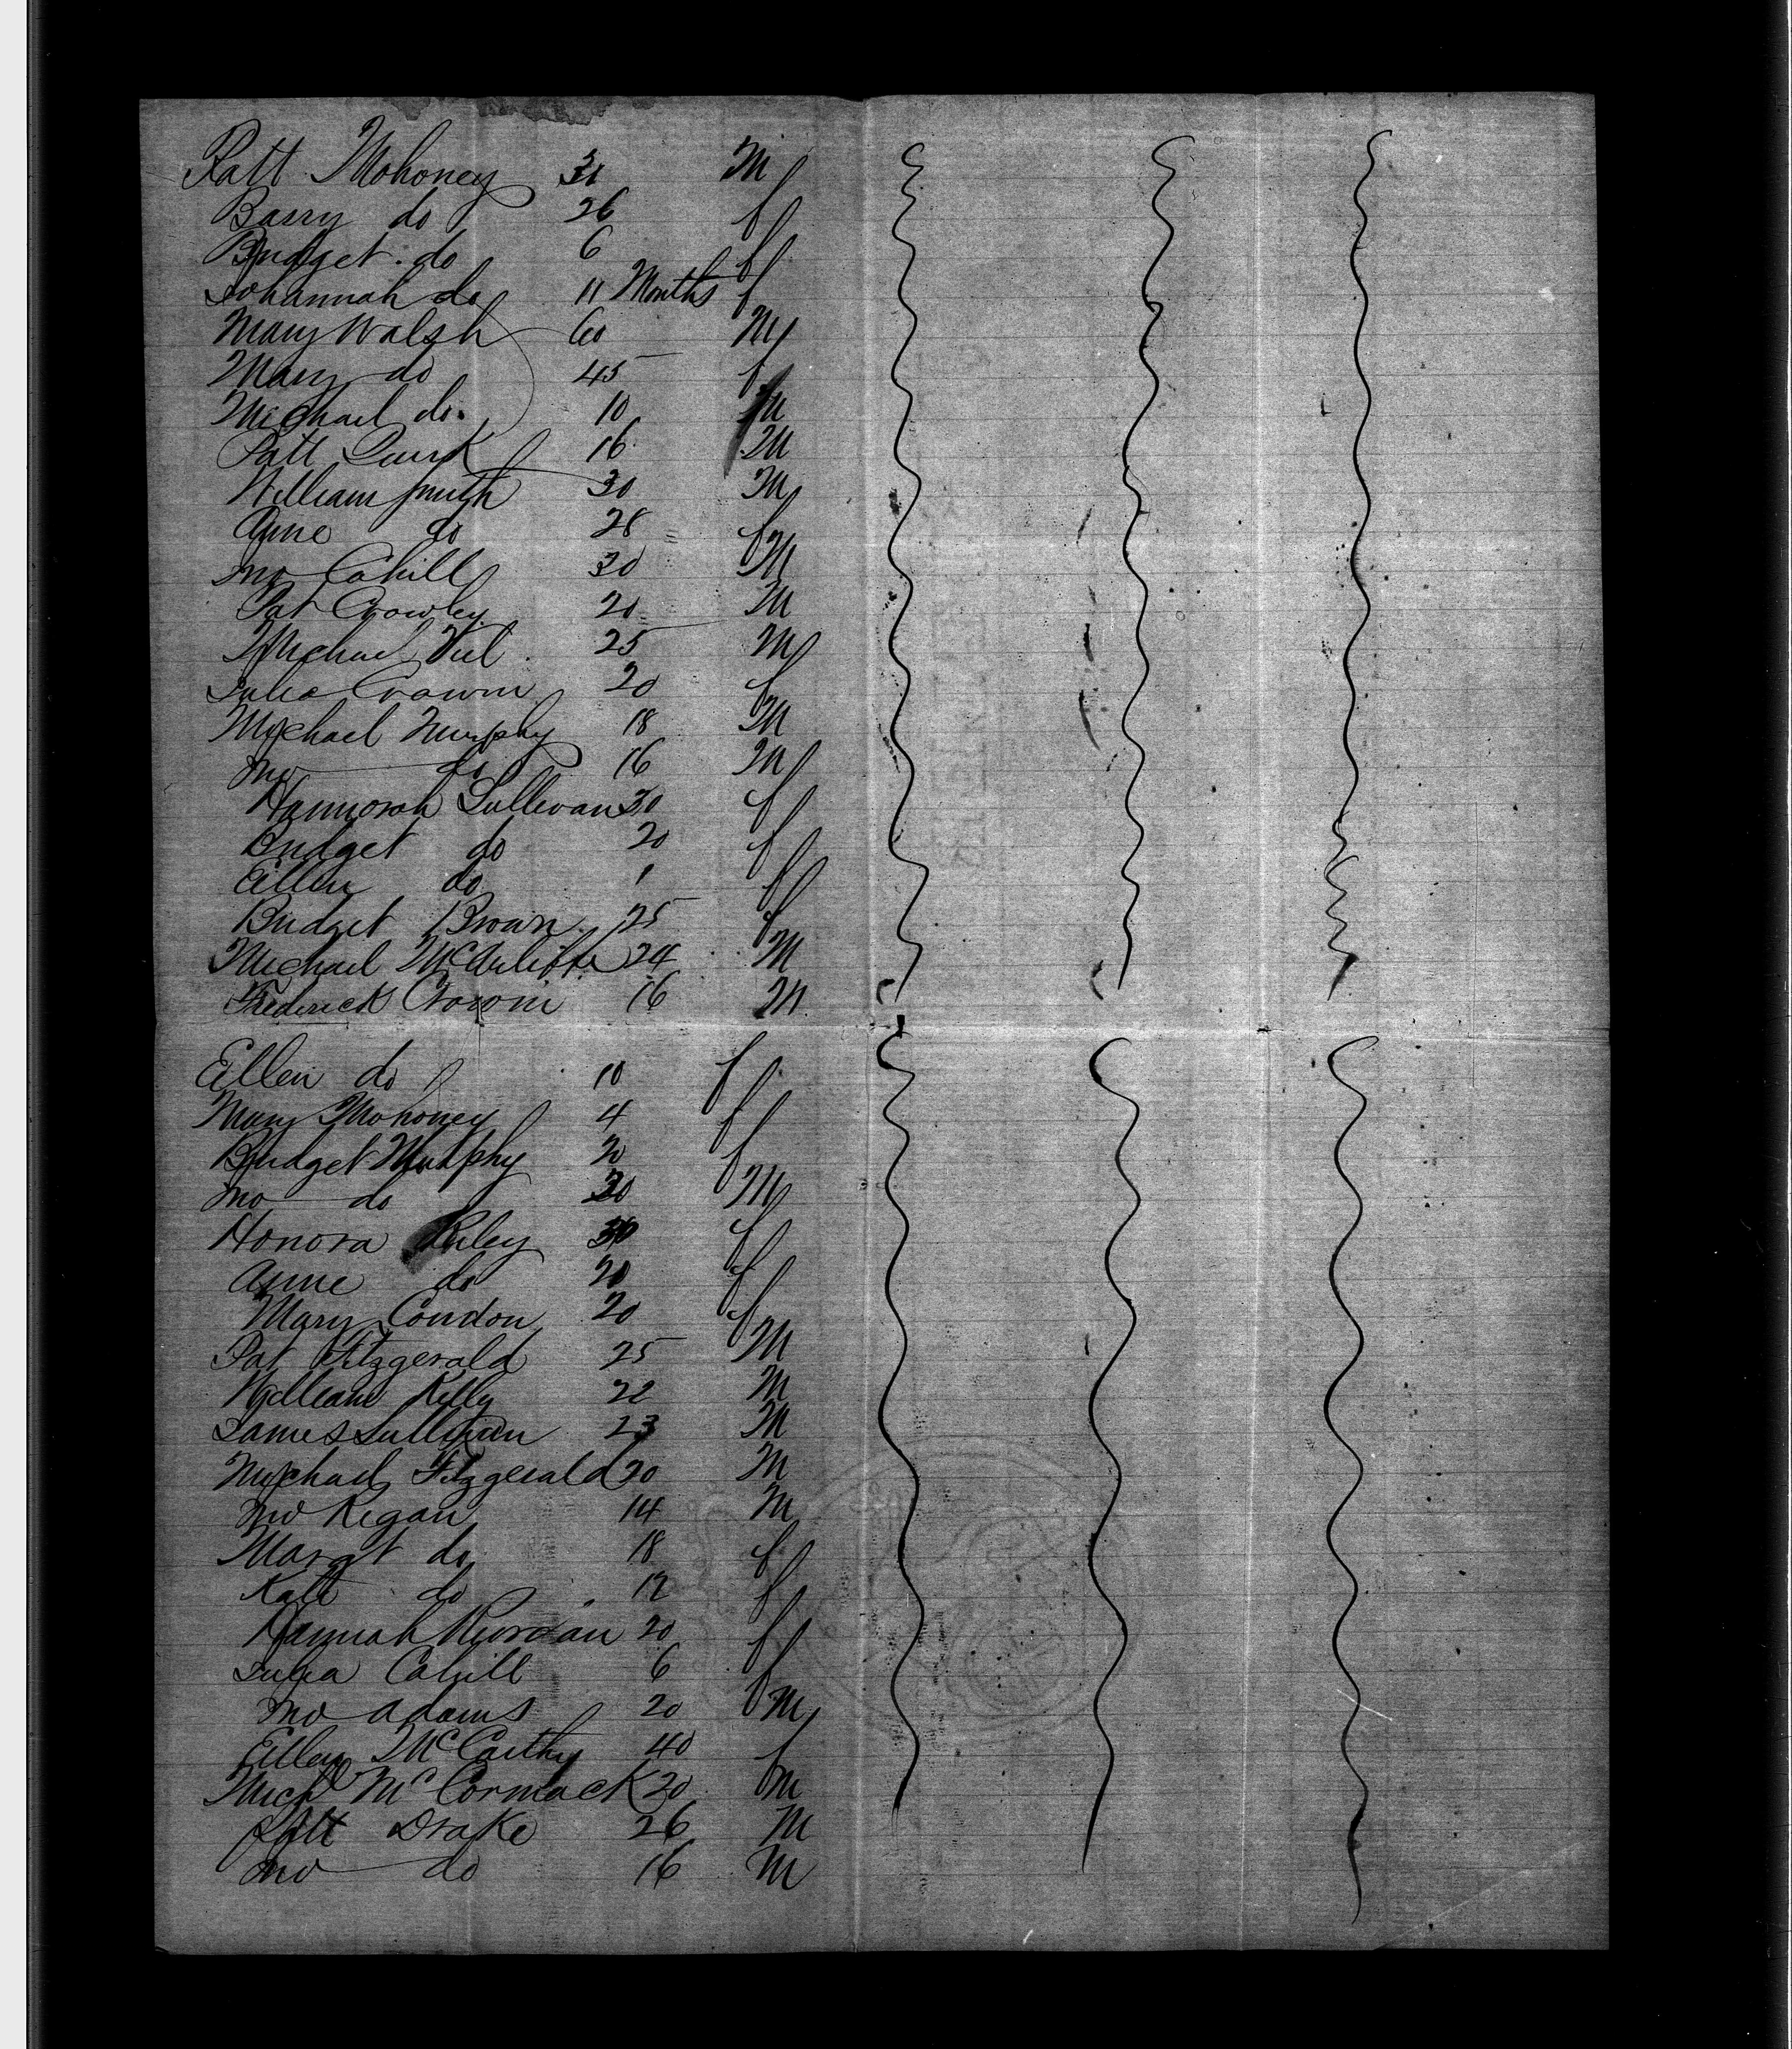 Patt Mohoney 31 M
Barry do 26 f
Bridget do 6 f
Johannah do 11 Months f
Mary Walsh 60 M
Mary do 45 f
Michael do 10 M
Patt Quirk 16 M
William Smith 30 M
Anne do 28 f
Jno Cahill 30 M
Pat Crowley 20 M
Michael 25 M
Julia 20 f
Michael Murphy 18 M
Jno do 16 M
Hannorah Sullivan 30 f
Bridget do 20 f
Ellen do 1 f
Bridget Brown 25 f
Michael McAuliffe 24 M
Frederick 16 M
Ellen do 10 f
Mary Mohoney 4 f
Bridget Murphy 20 f
Jno do 30 M
Honora Riley 30 f
Anne do 20 f
Mary Condon 20 f
Pat Fitzgerald 25 M
William Kelly 22 M
James Sullivan 23 M
Michael Fitzgerald 20 M
Jno Regan 14 M
Margt do 18 f
Kate do 12 f
Hannah Riordan 20 f
Julia Cahill 6 f
Jno Adams 20 M
Ellen McCarthy 40 f
Michl McCormack 20 M
Patt Drake 26 M
Jno do 16 M